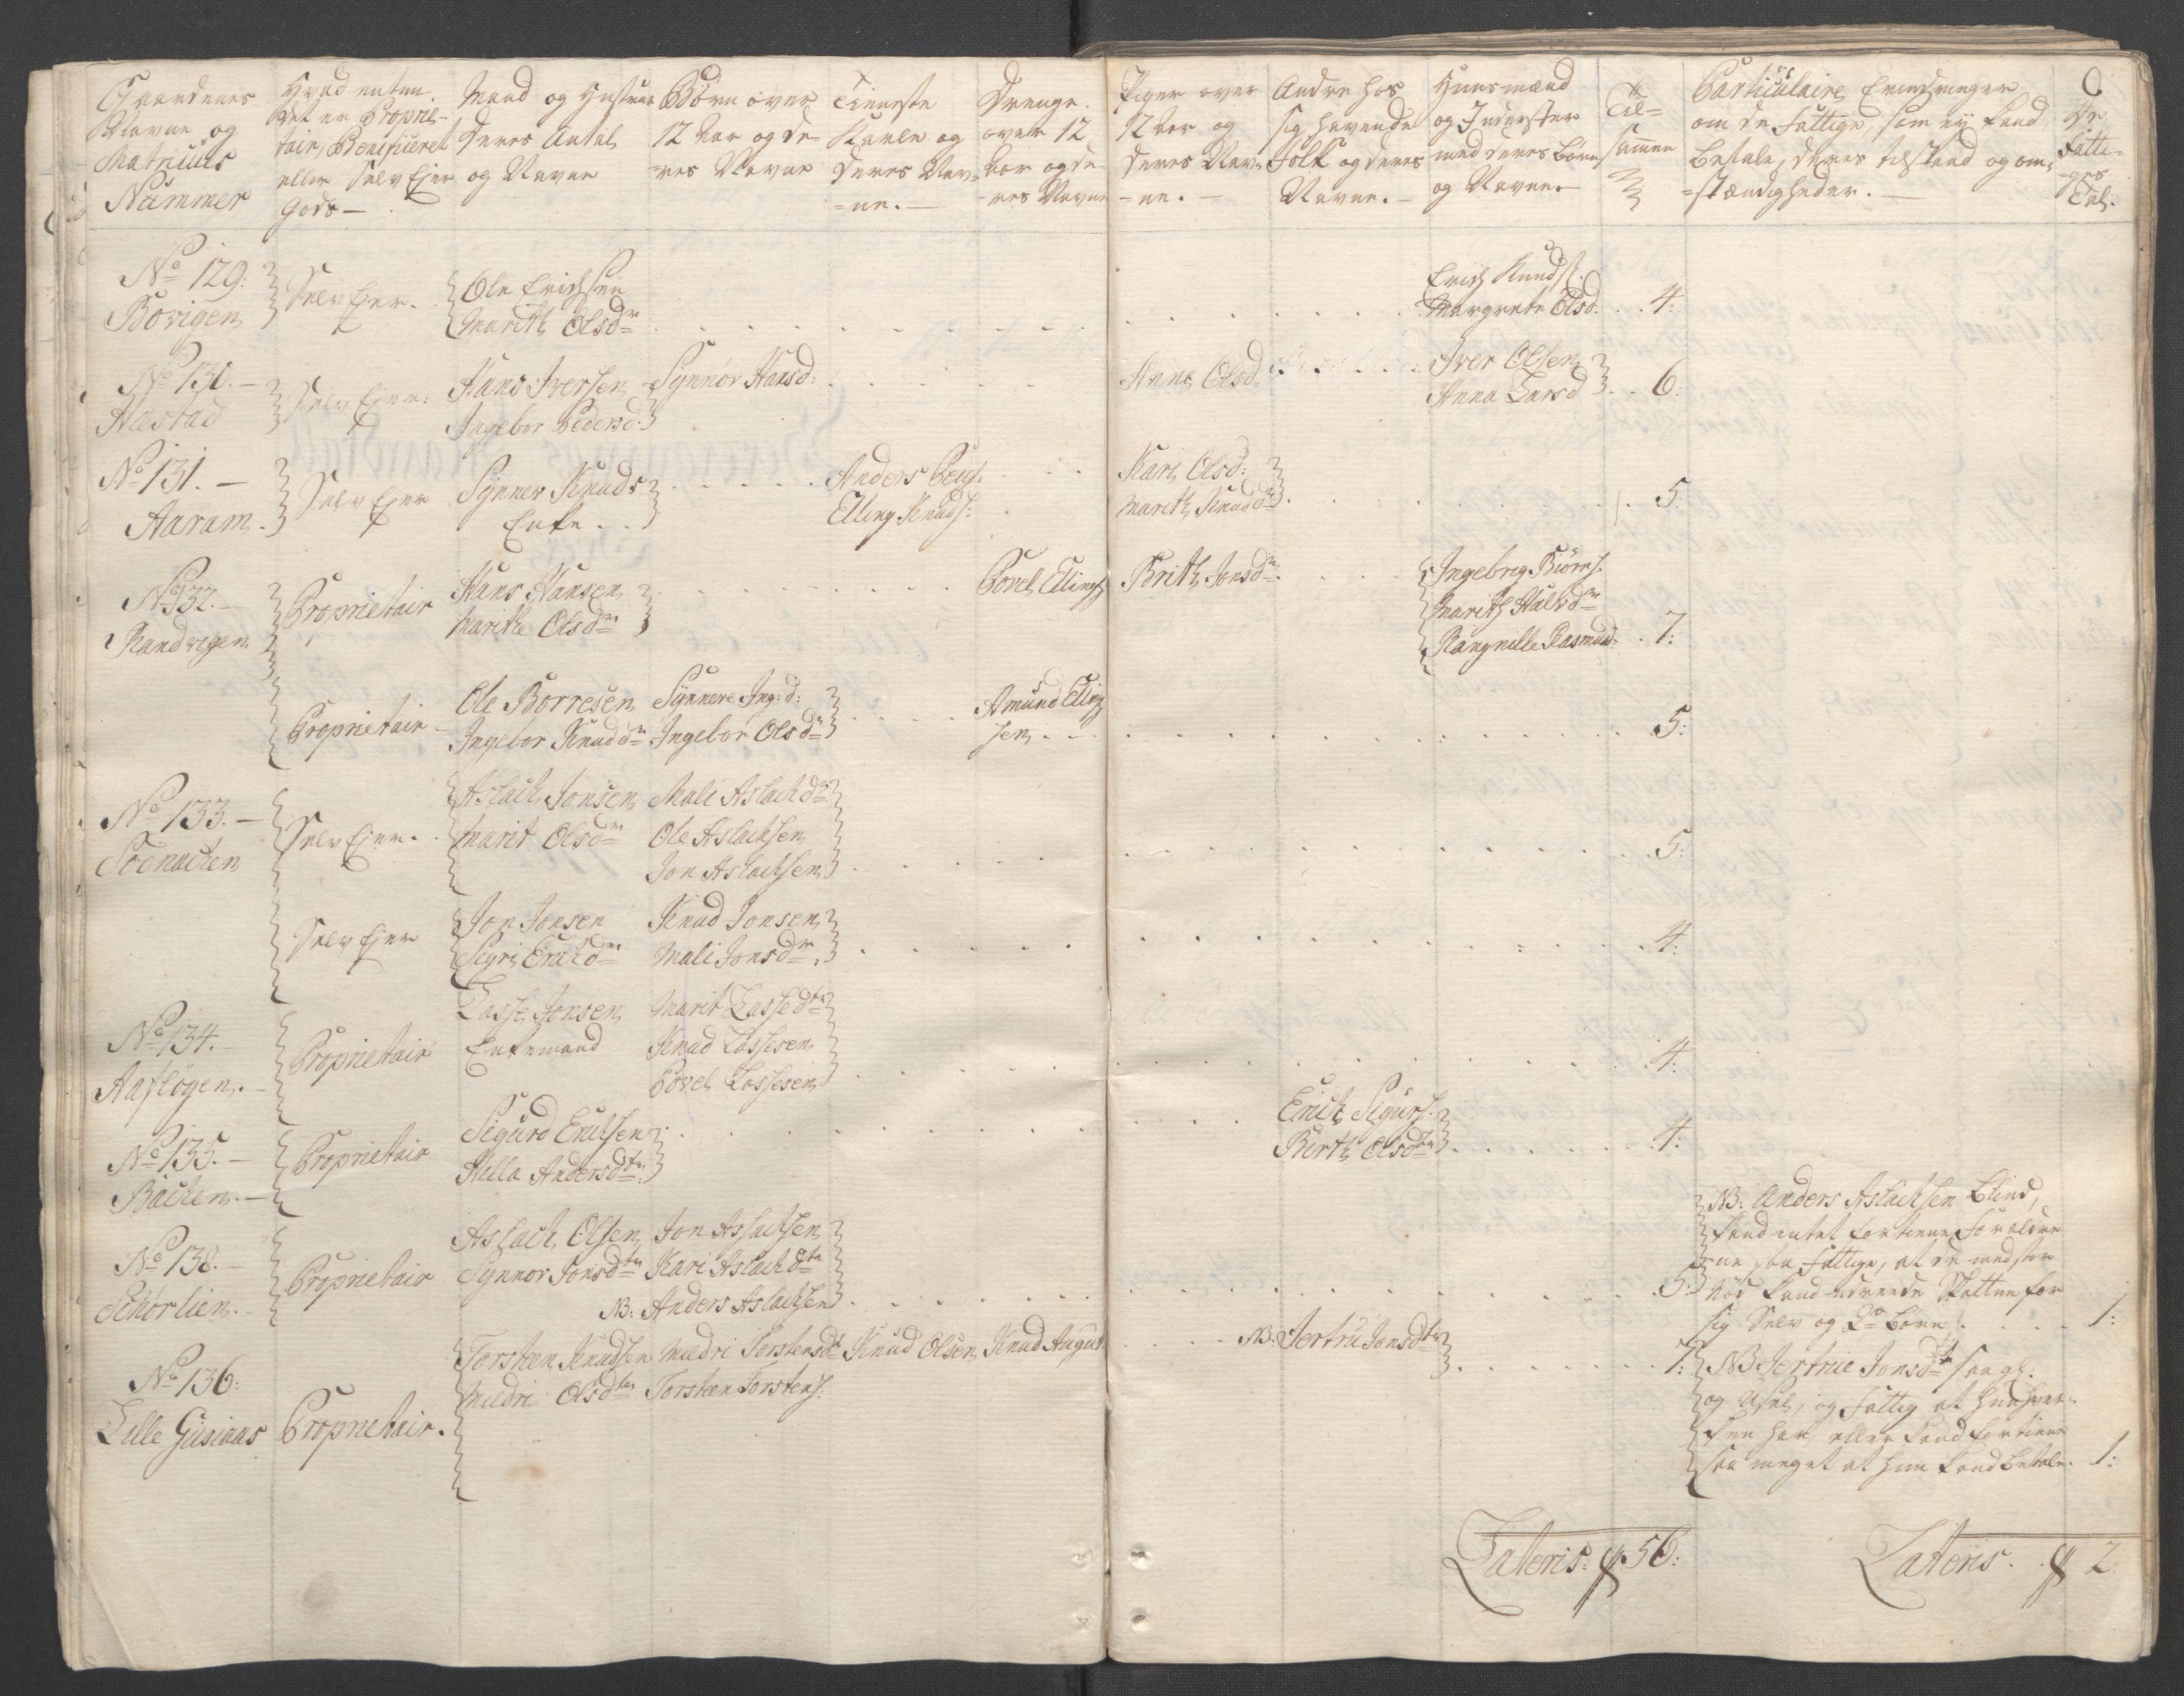 Gaardenes
Navne og
Matriculs
Nummer
Hvad enten
det er Proprie-
tair, Beneficeret
eller Selv Ejer
Gods —
Mand og Hustrue
deres Antal
og Navne
Børn over
12 Aar og de-
=res Navne
Tieneste
Karle og
deres Nav-
=ne. —
Drenge
over 12
Aar og de-
=res Navne
Piger over
12 Aar og
deres Nav-
=ne. —
Andre hos
sig havende
Folk og deres
Navne. —
Huusmænd
og Inderster
med deres Børn
og Navne. —
Til=
sammen
Particulaire Erindringer
om de Fattige, som ej kand
betale, deres tilstand og om-
=stændigheder. —
De
Fatti-
=ges
Tal.
No 129:
Bovigen
Selv Ejer.
Ole Erichsen
Marith Olsdr
Erich Knuds.
Margrete Olsd:
4:
No 130. —
Aastad
Selv Ejer:
Hans Iversen
Ingebor Pedersd:
Synnør Hansd:
Anne Olsd
Iver Olsen
Anna Larsd
6:
No 131. —
Aaram.
Selv Ejer
Synnev Knuds
Enke.
Anders Peys.
Elling Knuds:
Kari Olsd:
Marith Knuddr
5:
No 132. —
Randvigen
Proprietair
Hans Hansen
Marithe Olsdr
Povel Ellings
Brith Jonsdr
Ingebrig Biørns.
Marith Halvdr
Rangnille Rasmusd:
7:
Proprietair
Ole Borresen
Ingebor Knuddr
Synneve Ing: d:
Ingebor Olsdr
Amund Elling
sen
5:
No 133. —
Soenachen
Selv Ejer.
Aslach Jonsen
Marit Olsdr
Mali Aslachdr
Ole Aslachsen
Jon Aslachsen
5:
Selv Ejer
Jon Jonsen
Sigri Erichdr
Knud Jonsen
Mali Jonsdr
4:
No 134.
Aasløgen. —
Proprietair
Lasse Jonsen
Enkemand
Marit Lassedtr
Knud Lassesen
Povel Lassesen
4:
No 135. —
Bachen. —
Proprietair
Sigurd Erichsen
Kella Andersdtr
Erich Sigurs.
Berth Olsdtr
4:
No 138. —
Schørlien.
Proprietair
Aslach Olsen
Synnør Jonsdtr
Jon Aslachsen
Kari Aslachdtr
NB: Anders Aslachsen
5:
NB: Anders Aslachsen blind,
kand intet fortiene, Forældre
ne saa Fattige, at de med stor
Nød kand udreede Skatten for
sig Selv og 2de Børn
1:
No 136:
Lille Gusiaas
Proprietair.
Torsten Knudsen
Mildri Olsdtr
Mildri Torstensdtr
Torsten Torstens.
Knud Olsen
Knud August
NB: Jertru Jonsdtr
7:
NB Jertrue Jonsdtr saa gl.
og Usel, og Fattig at hun hver-
ken har, eller kand fortiene
saa meget at hun kand betale.
1:
Lateris: 56:
Lateris. 2